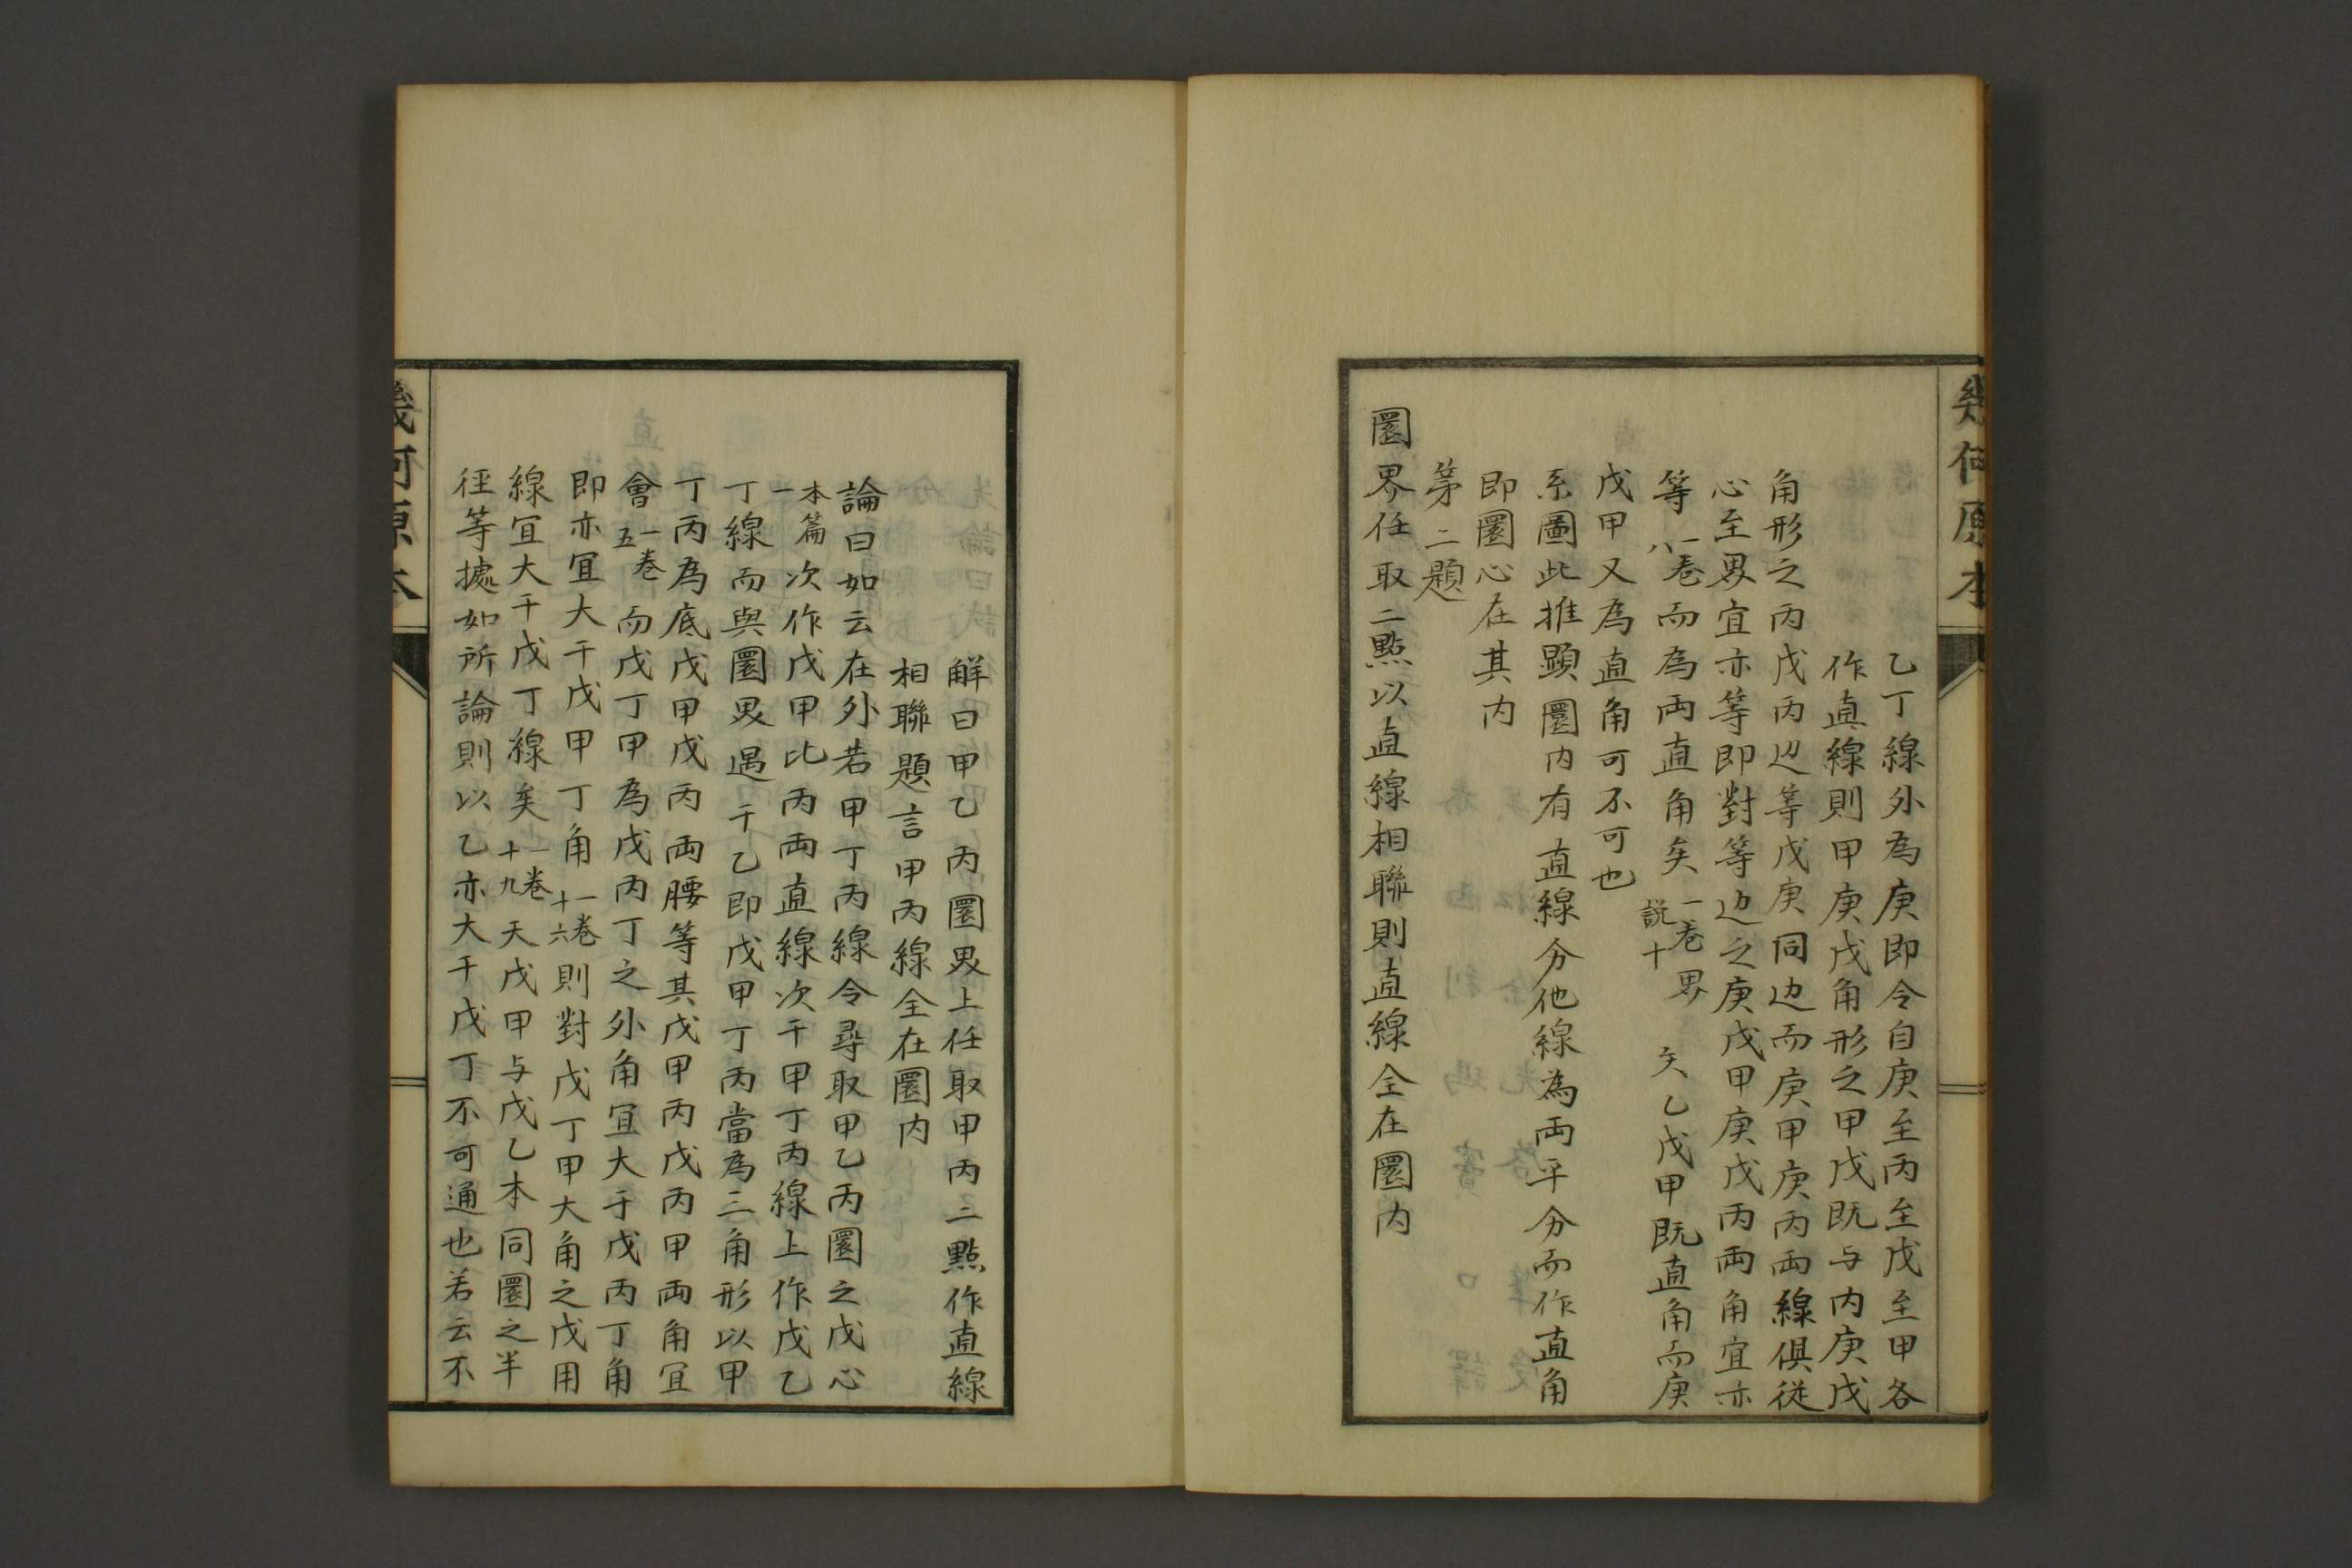 幾何原本
乙丁線外為庚即令自庚至丙至戊至甲各
作直線則甲庚戊角形之甲戊既与内庚戊
角形之丙戊丙边等戊庚同边而庚甲庚丙两線俱従
心至界宜亦等即對等边之庚戊甲庚戊丙两角宜亦
等一卷八而為两直角矣一卷界説十矣乙戊甲既直角而庚
戊甲又為直角可不可也
系圖此推顕圜内有直線分他線為两平分而作直角
即圜心在其内
第二題
圜界任取二點以直線相聯則直線全在圜内
解曰甲乙丙圜界上任取甲丙二點作直線
相聯題言甲丙線全在圜内
論曰如云在外若甲丁丙線令尋取甲乙丙圜之戊心
本篇一次作戊甲比丙両直線次于甲丁丙線上作戊乙
丁線而與圜界遇于乙即戊甲丁丙當為三角形以甲
丁丙為底戊甲戊丙両腰等其戊甲丙戊丙甲両角宜
會一卷五而戊丁甲為戊丙丁之外角宜大于戊丙丁角
即亦宜大于戊甲丁角一卷十六則對戊丁甲大角之戊用
線宜大于戊丁線矣一卷十九天戊甲与戊乙本同圜之半
徑等據如所論則以乙亦大于戊丁不可通也若云不
幾何原本